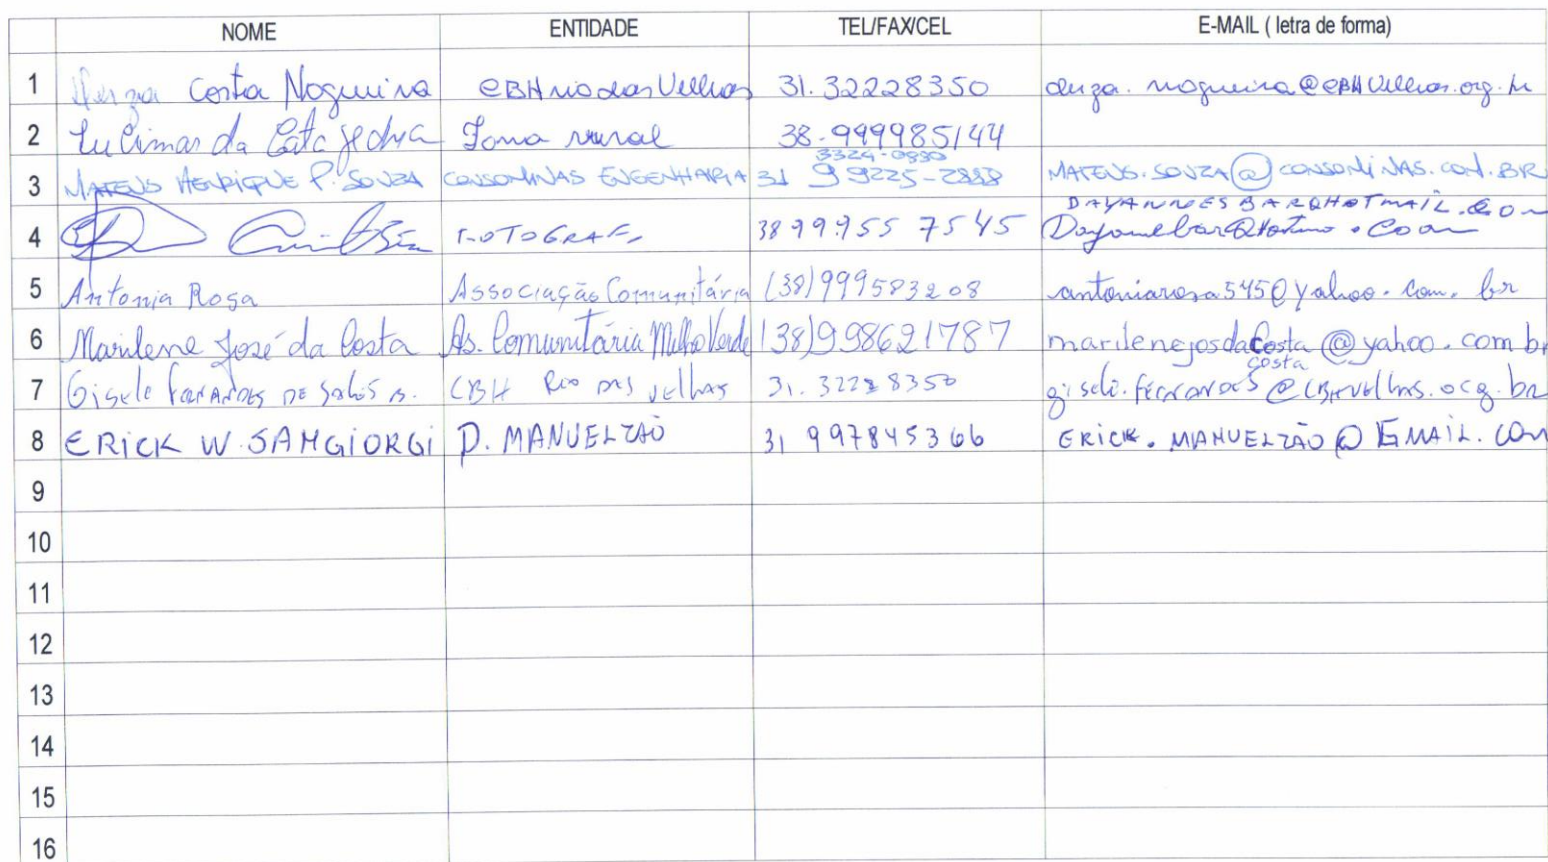 NOME ENTIDADE TEL/FAX/CEL E-MAIL ( letra de forma)
1 Costa Nogueira CBH rio das Velhas 31.32228350 nogueira@CBHVelhas.org.br
2 Lucimar da rural 38-999985144
3324-0880
3 MATEUS HENRIQUE P. SOUZA CONSOMINAS ENGENHARIA 31 99225-2888 MATEUS.SOUZA@CONSOMINAS.COM.BR
DAYANNESBAR@HOTMAIL.COM
4 FOTOGRAF 38 99955 7545
5 Antonia Rosa Associação Comunitária (38)999583208 antoniarosa545@yahoo.com.br
6 Marilene José da Costa As. Comunitária Milho Verde (38)998621787 marilenejosdaCosta@yahoo.com br
costa
7 Gisele FERNANDES DE Sales CBH RIO DAS Velhas 31.32228350 @CBHVelhas.org.br
8 ERICK W. SANGIORGI P. MANUELZÃO 31 997845366 ERICK.MANUELZÃO@GMAIL.COM
9
10
11
12
13
14
15
16